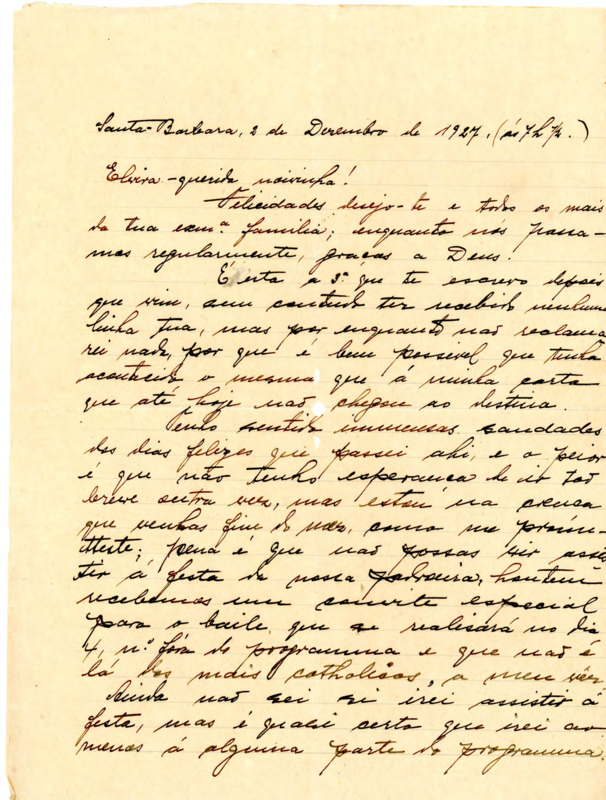 Santa-Barbara, 2 de Dezembro de 1927. (ás 7h ½.)
Elvira - querida noivinha!
Felicidades desejo-te e todos os mais
da tua exmª. familia; enquanto nos passa-
mos regularmente, graças a Deus.
É esta a 3ª que te escrevo depois
que vim, sem contudo ter recebido nenhuma
linha tua, mas por enquanto não reclama
rei nada, por que é bem possivel que tenha
acontecido o mesmo que á minha carta
que até hoje não chegou ao destino.
Tenho sentido immensas saudades
dos dias felizes que passei ahi, e o peor
é que não tenho esperança de ir tão
breve outra vez, mas estou na crença
que venhas fim do mez, como me prom-
etteste; pena é que não possas vir assis
tir á festa da nossa padroeira, hontem
recebemos um convite especial
para o baile que se realisará no dia
4, nº fóra do programma e que não é
lá dos mais catholicos, a meu vêr.
Ainda não sei si irei assistir á
festa, mas é quasi certo que irei ao
menos á alguma parte do programma.